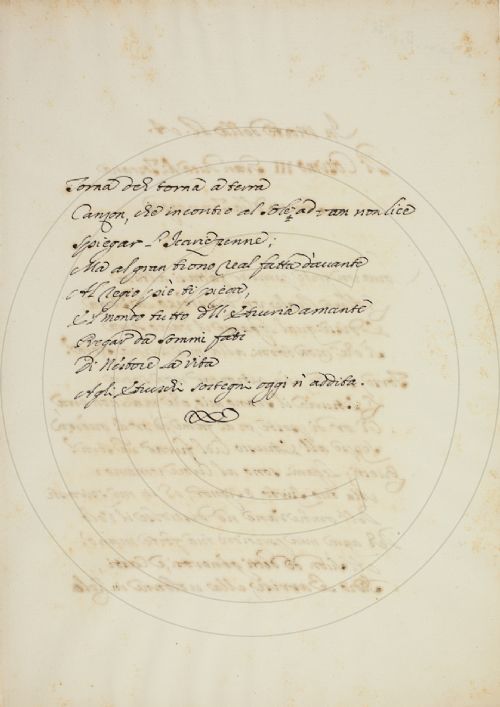 Torna deh torna à terra
Canzon, che incontro al Sole ad : am non lice
Spiegar l'Icaree penne;
Ma al gran trono real fatta davante
Al Regio piè ti piega,
E'l mondo tutto all' Etruria amante
Pregar da sommi fati
Di Nestore la vita
Agli Etruschi sostegni oggi n' addita.